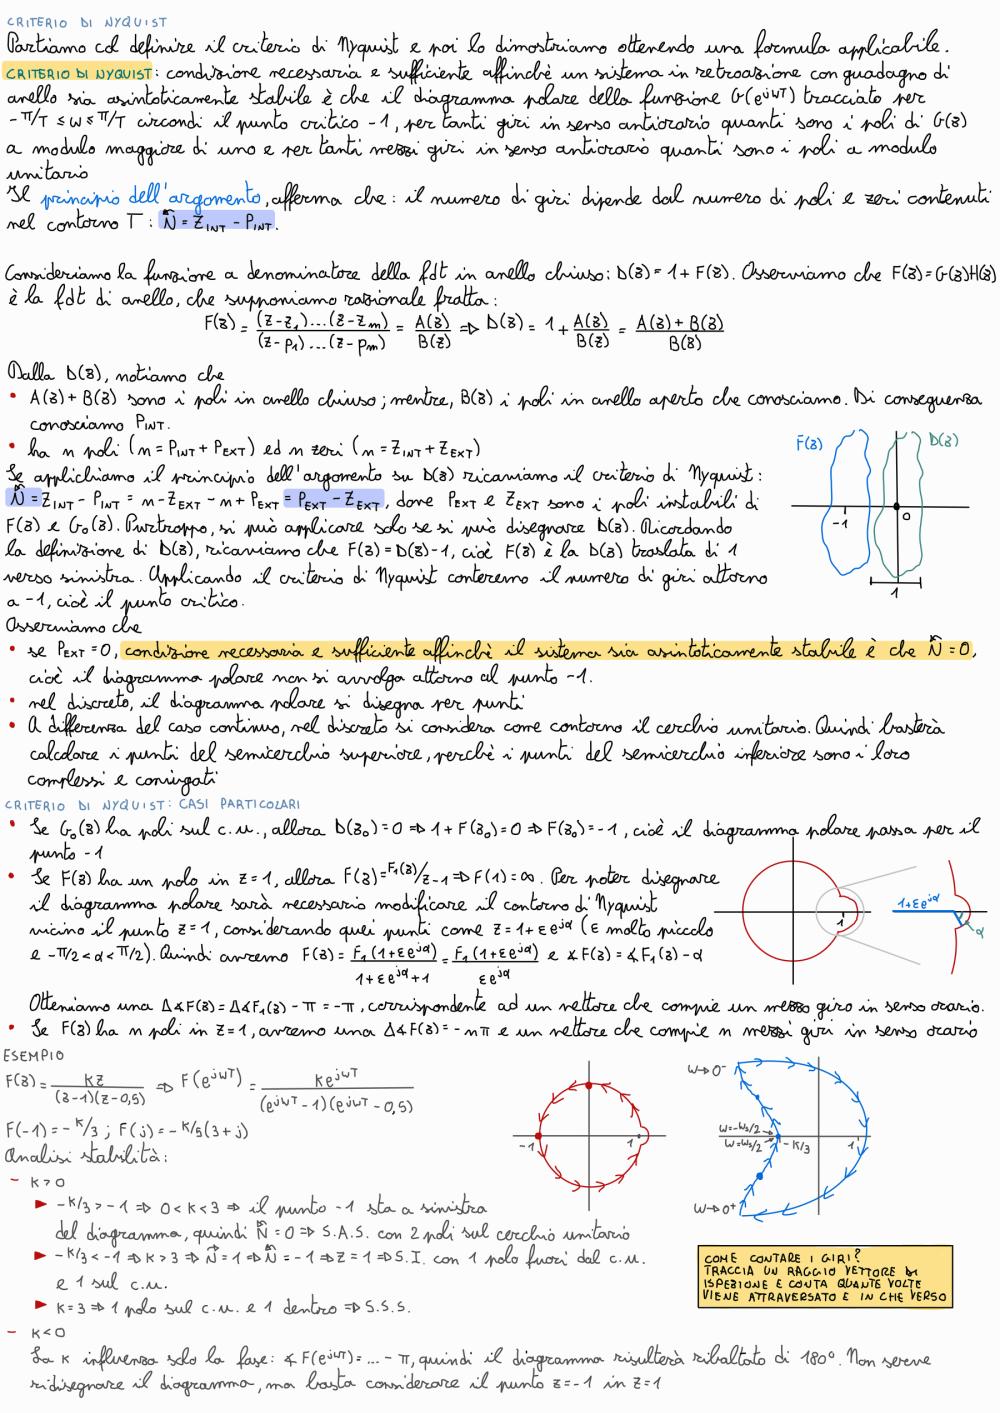 CRITERIO DI NYQUIST
Partiamo col definire il criterio di Nyquist e poi lo dimostriamo ottenendo una formula applicabile.
CRITERIO DI NYQUIST: condizione necessaria e sufficiente affinchè un sistema in retroazione con guadagno di
anello sia asintoticamente stabile è che il diagramma polare della funzione G(e^jωT) tracciato per
-π/T ≤ ω ≤ π/T circondi il punto critico -1, per tanti giri in senso antiorario quanti sono i poli di G(z)
a modulo maggiore di uno e per tanti mezzi giri in senso antiorario quanti sono i poli a modulo
unitario
Il principio dell'argomento, afferma che: il numero di giri dipende dal numero di poli e zeri contenuti
nel contorno T: N = Z_INT - P_INT.
Consideriamo la funzione a denominatore della fdt in anello chiuso: D(z) = 1 + F(z). Osserviamo che F(z)=G(z)H(z)
è la fdt di anello, che supponiamo razionale fratta:
F(z) = (z-z₁)...(z-z_m)/(z-p₁)...(z-p_m) = A(z)/B(z) ⇒ D(z) = 1 + A(z)/B(z) = A(z)+B(z)/B(z)
Dalla D(z), notiamo che
• A(z)+B(z) sono i poli in anello chiuso; mentre, B(z) i poli in anello aperto che conosciamo. Di conseguenza
conosciamo P_INT.
• ha n poli (n = P_INT + P_EXT) ed n zeri (n = Z_INT + Z_EXT)
Se applichiamo il principio dell'argomento su D(z) ricaviamo il criterio di Nyquist:
N = Z_INT - P_INT = n - Z_EXT - n + P_EXT = P_EXT - Z_EXT, dove P_EXT e Z_EXT sono i poli instabili di
F(z) e G₀(z). Purtroppo, si può applicare solo se si può disegnare D(z). Ricordando
la definizione di D(z), ricaviamo che F(z) = D(z)-1, cioè F(z) è la D(z) traslata di 1
verso sinistra. Applicando il criterio di Nyquist conteremo il numero di giri attorno
a -1, cioè il punto critico.
F(z) D(z)
-1 0
1
Osserviamo che
• se P_EXT = 0, condizione necessaria e sufficiente affinchè il sistema sia asintoticamente stabile è che N = 0,
cioè il diagramma polare non si avvolga attorno al punto -1.
• nel discreto, il diagramma polare si disegna per punti
• A differenza del caso continuo, nel discreto si considera come contorno il cerchio unitario. Quindi basterà
calcolare i punti del semicerchio superiore, perchè i punti del semicerchio inferiore sono i loro
complessi e coniugati
CRITERIO DI NYQUIST: CASI PARTICOLARI
• Se G₀(z) ha poli sul c.u., allora D(z₀) = 0 ⇒ 1 + F(z₀) = 0 ⇒ F(z₀) = -1, cioè il diagramma polare passa per il
punto -1
• Se F(z) ha un polo in z = 1, allora F(z) = F₁(z)/z-1 ⇒ F(1) = ∞. Per poter disegnare
il diagramma polare sarà necessario modificare il contorno di Nyquist
vicino il punto z = 1, considerando quei punti come z = 1+εe^jα (ε molto piccolo
e -π/2 < α < π/2). Quindi avremo F(z) = F₁(1+εe^jα)/1+εe^jα+1 = F₁(1+εe^jα)/εe^jα e ∡F(z) = ∡F₁(z) - α
1
1+εe^jα
α
Otteniamo una Δ∡F(z) = Δ∡F₁(z) - π = -π, corrispondente ad un vettore che compie un mezzo giro in senso orario.
• Se F(z) ha n poli in z = 1, avremo una Δ∡F(z) = -nπ e un vettore che compie n mezzi giri in senso orario
ESEMPIO
F(z) = kz/(z-1)(z-0,5) ⇒ F(e^jωT) = ke^jωT/(e^jωT-1)(e^jωT-0,5)
F(-1) = -k/3 ; F(j) = -k/5(3+j)
-1 1
ω→0⁻
ω=-ωs/2
ω=ωs/2
-k/3
1
ω→0⁺
Analisi stabilità:
- k > 0
▶ -k/3 > -1 ⇒ 0 < k < 3 ⇒ il punto -1 sta a sinistra
del diagramma, quindi N = 0 ⇒ S.A.S. con 2 poli sul cerchio unitario
▶ -k/3 < -1 ⇒ k > 3 ⇒ N = 1 ⇒ N = -1 ⇒ z = 1 ⇒ S.I. con 1 polo fuori dal c.u.
e 1 sul c.u.
▶ k = 3 ⇒ 1 polo sul c.u. e 1 dentro ⇒ S.S.S.
COME CONTARE I GIRI?
TRACCIA UN RAGGIO VETTORE DI
ISPEZIONE E CONTA QUANTE VOLTE
VIENE ATTRAVERSATO E IN CHE VERSO
- k < 0
La k influenza solo la fase: ∡F(e^jωT) = ... - π, quindi il diagramma risulterà ribaltato di 180°. Non serve
ridisegnare il diagramma, ma basta considerare il punto z = -1 in z = 1